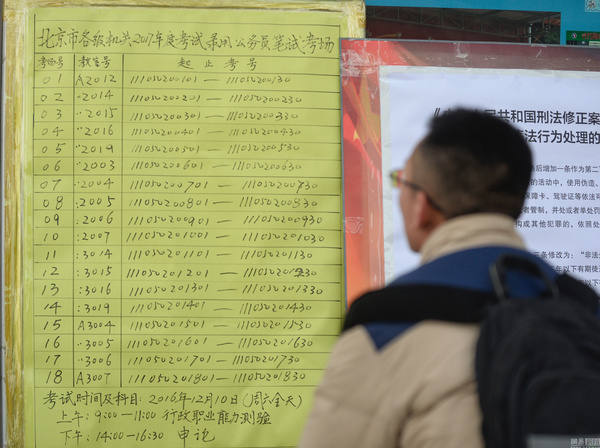 北京市各级机关2017年度考试录用公务员笔试考场
考场号 教室号 起止考号
01 A2012 111050200101 — 111050200130
02 ··2014 111050200201 — 111050200230
03 ··2015 111050200301 — 111050200330
04 ··2016 111050200401 — 111050200430
05 ··2019 111050200501 — 111050200530
06 ··2003 111050200601 — 111050200630
07 ··2004 111050200701 — 111050200730
08 ··2005 111050200801 — 111050200830
09 ··2006 111050200901 — 111050200930
10 ··2007 111050201001 — 111050201030
11 ··3014 111050201101 — 111050201130
12 ··3015 111050201201 — 111050201230
13 ··3016 111050201301 — 111050201330
14 ··3019 111050201401 — 111050201430
15 A3004 111050201501 — 111050201530
16 ··3005 111050201601 — 111050201630
17 ··3006 111050201701 — 111050201730
18 A3007 111050201801 — 111050201830
考试时间及科目: 2016年12月10日(周六全天)
上午: 9:00—11:00 行政职业能力测验
下午: 14:00—16:30 申论
民共和国刑法修正案
法行为处理的
后增加一条作为第二
的活动中，使用伪造、
保障卡、驾驶证等依法可
者管制，并处或者单处罚
构成其他犯罪的，依照处
条修改为：“非法
年以下有期徒